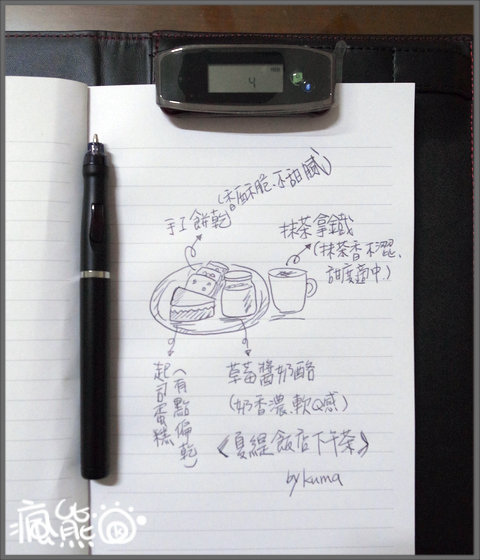 4
(香酥脆、不甜膩)
手工餅乾
抹茶拿鐵
(抹茶香不澀、
甜度適中)
起司蛋糕
(有點偏乾)
草莓醬奶酪
(奶香濃、軟Q感)
《夏緹飯店下午茶》
by kuma
瘋熊